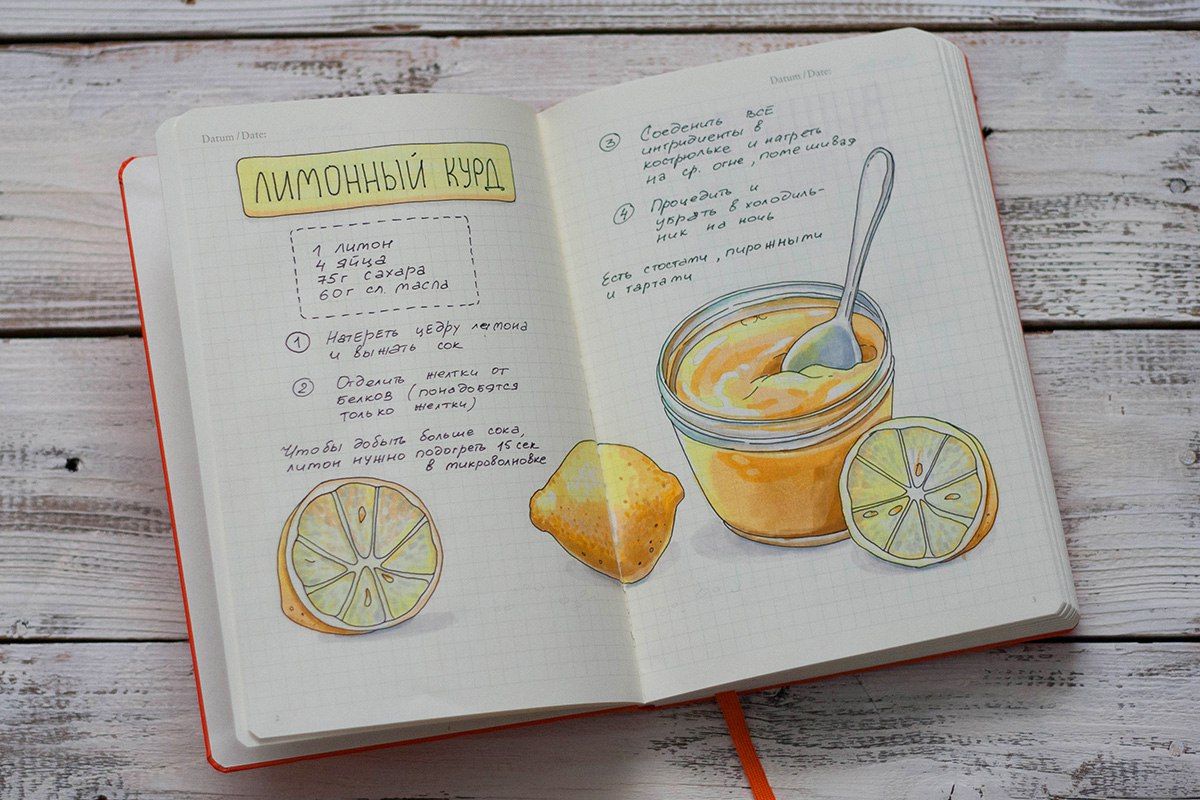 Datum / Date:
ЛИМОННЫЙ КУРД
1 лимон
4 яйца
75г сахара
60г сл. масла
1 Натереть цедру лимона
и выжать сок
2 Отделить желтки от
белков (понадобятся
только желтки)
Чтобы добыть больше сока,
лимон нужно подогреть 15 сек
в микроволновке
Datum / Date:
3 Соеденить все
ингридиенты в
кострюльке и нагреть
на ср. огне, помешивая
4 Процедить и
убрать в холодиль-
ник на ночь
Есть с тостами, пирожными
и тартами